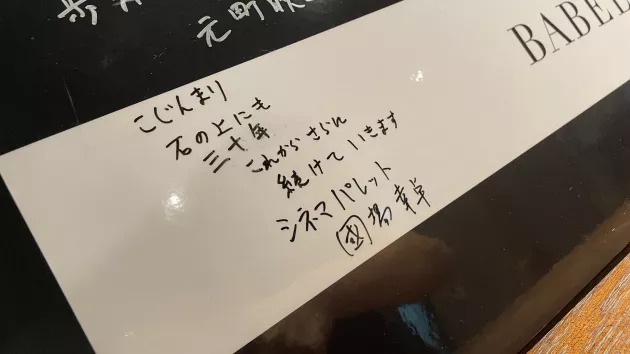 元町映
BABEL
こじんまり
石の上にも
三十年
これからさらん
続けていきます
シネマパレット
國場幸卓